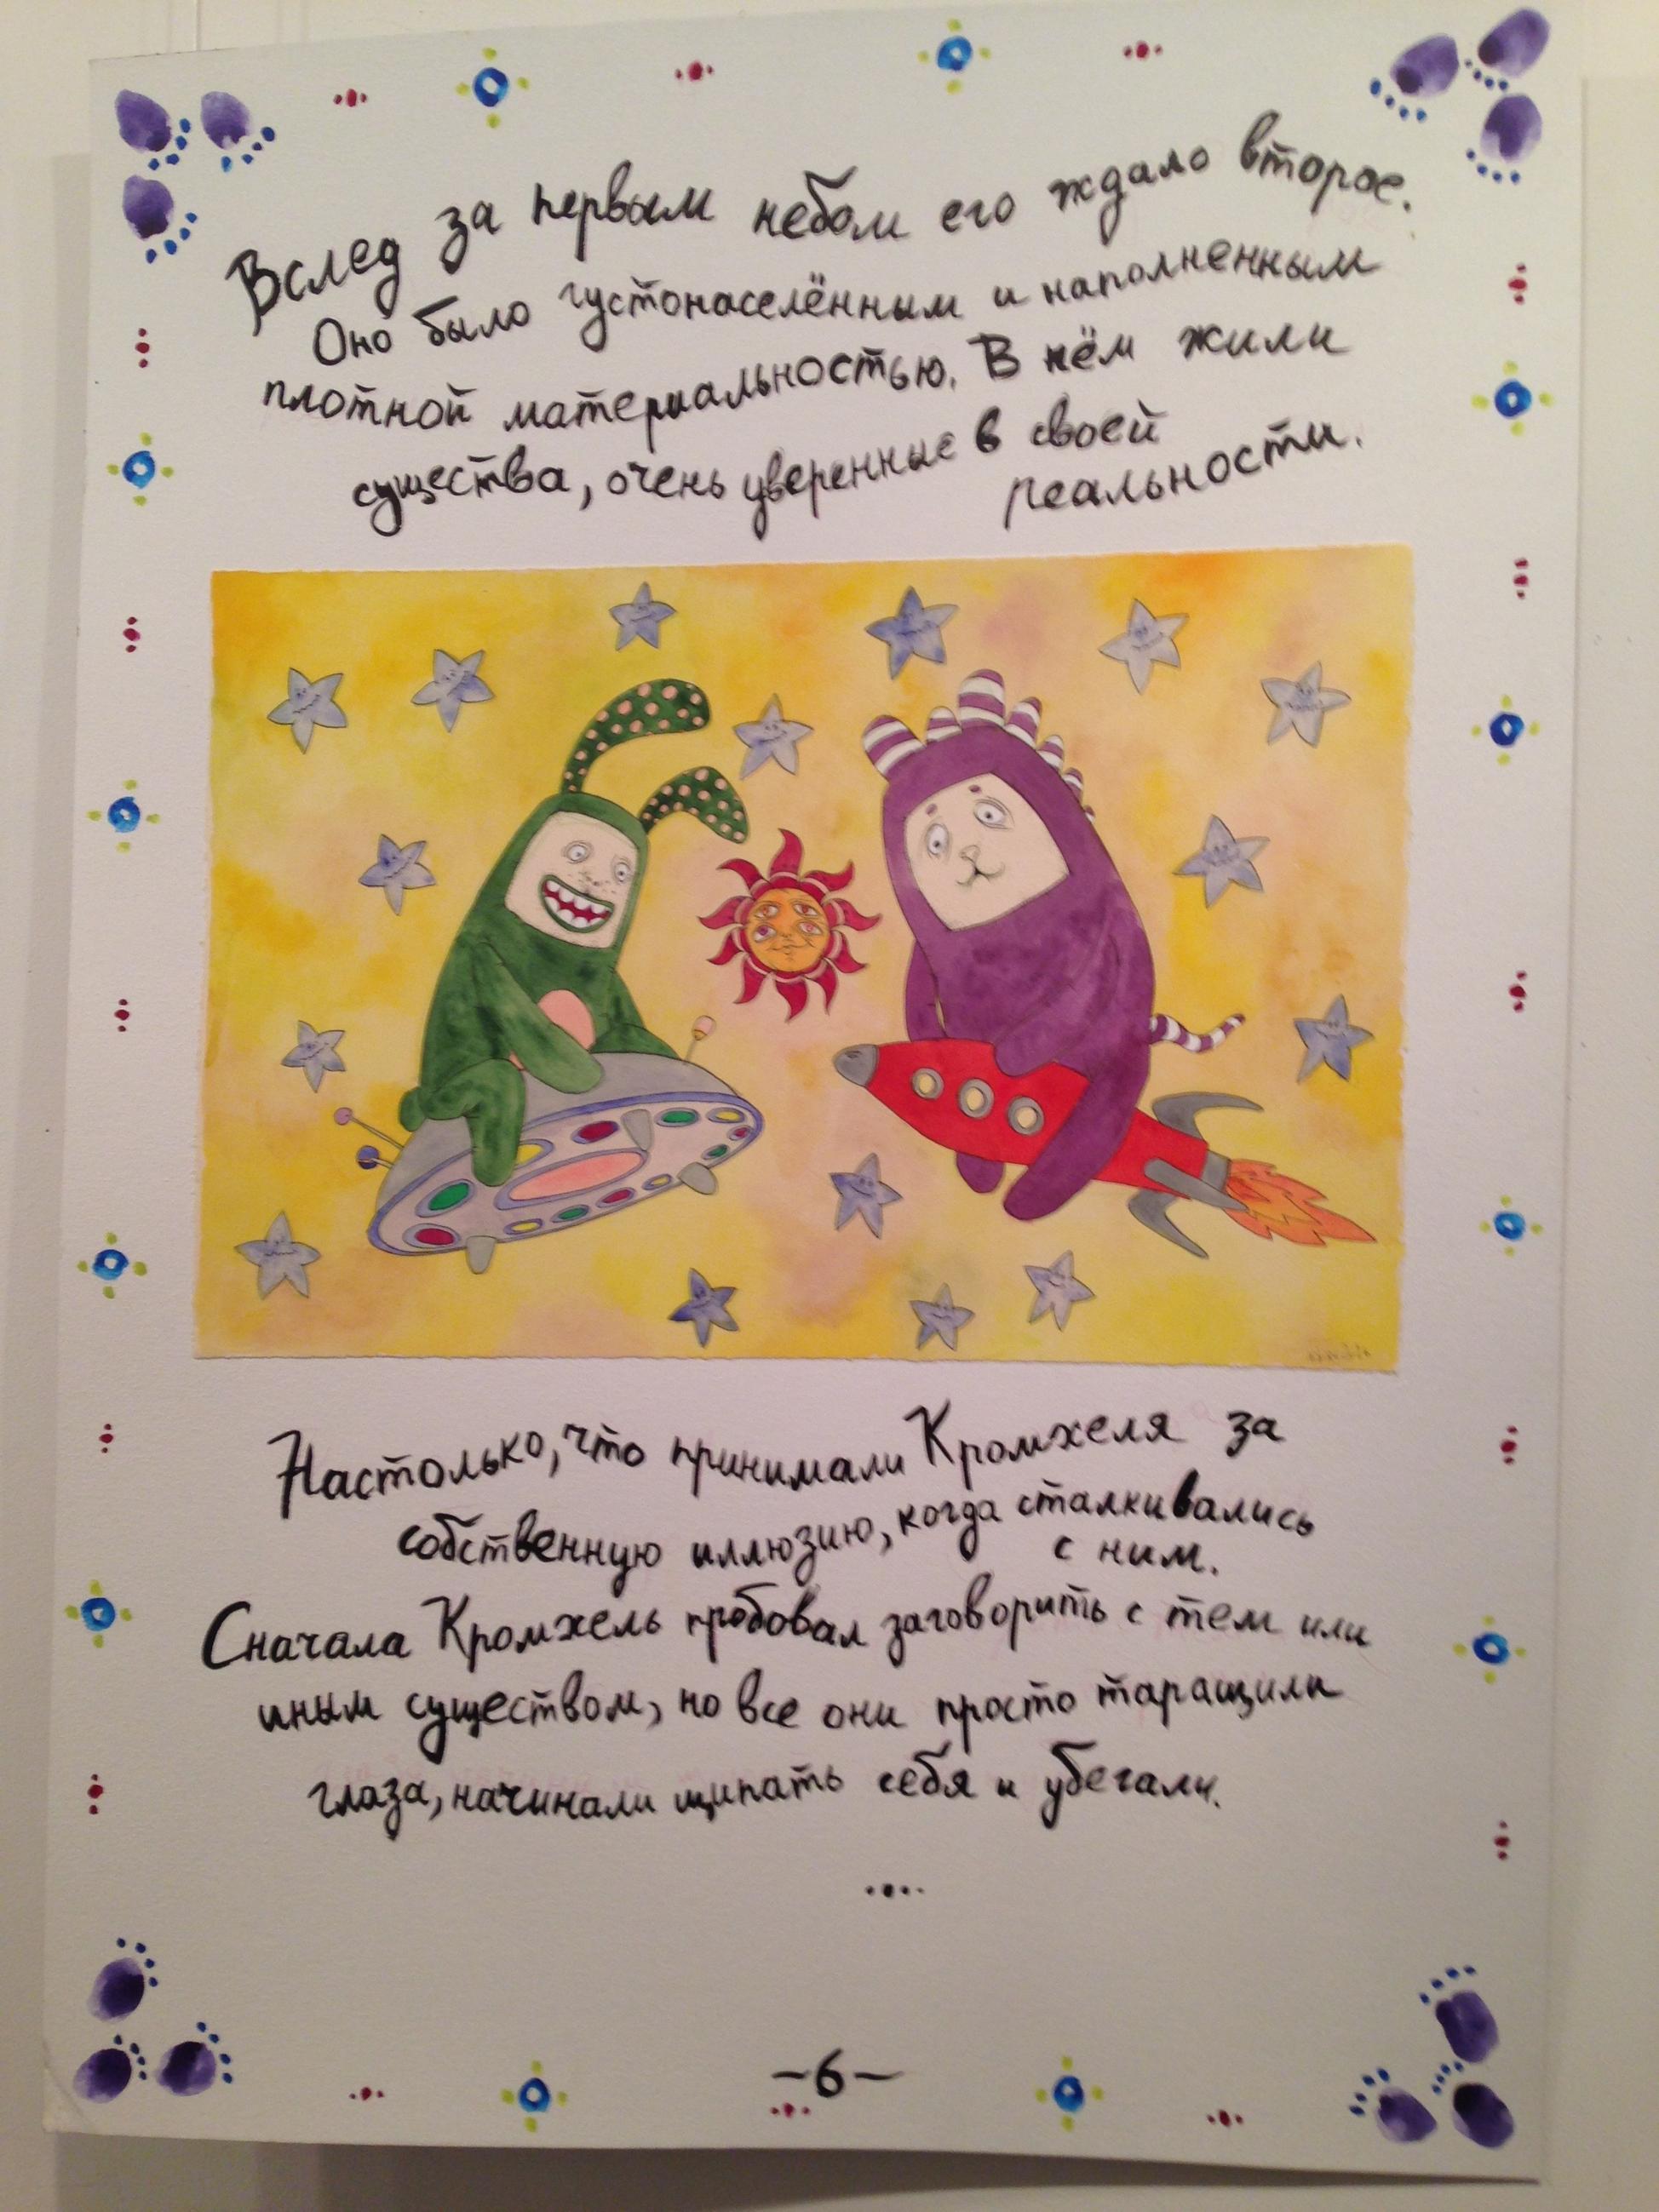 Вслед за первым небом его ждало второе.
Оно было густонаселённым и наполненным
плотной материальностью. В нём жили
существа, очень уверенные в своей
реальности.
Настолько, что принимали Кромхеля за
собственную иллюзию, когда сталкивались
с ним.
Сначала Кромхель пробовал заговорить с тем или
иным существом, но все они просто таращили
глаза, начинали щипать себя и убегали.
....
-6-